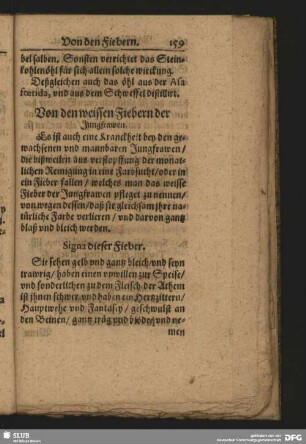 Von den Fiebern. 159
bel salben. Sonsten verrichtet das Stein-
kohlenöhl für sich allein solche wirckung.
Deßgleichen auch das öhl aus der Asa
foetida, und aus dem Schweffel distillirt.
Von den weissen Fiebern der
Jungfrawen.
Es ist auch eine Kranckheit bey den ge-
wachsenen und mannbaren Jungfrawen/
die bißweilen aus verstopffung der monat-
lichen Reinigung in eine Farbsucht/oder in
ein Fieber fallen/ welches man das weisse
Fieber der Jungfrawen pfleget zu nennen/
von wegen dessen/daß sie gleichsam ihre na-
türliche Farbe verlieren/ und darvon gantz
blaß und bleich werden.
Signa dieser Fieber.
Sie sehen gelb und gantz bleich/und seyn
trawrig/ haben einen unwillen zur Speise/
und sonderlichen zu dem Fleisch der Athem
ist ihnen schwer/und haben ein Hertzzittern/
Hauptwehe und Fantasey/ geschwulst an
den Beinen/ gantz träg und blöde/ und ne-
men
SLUB
DFG